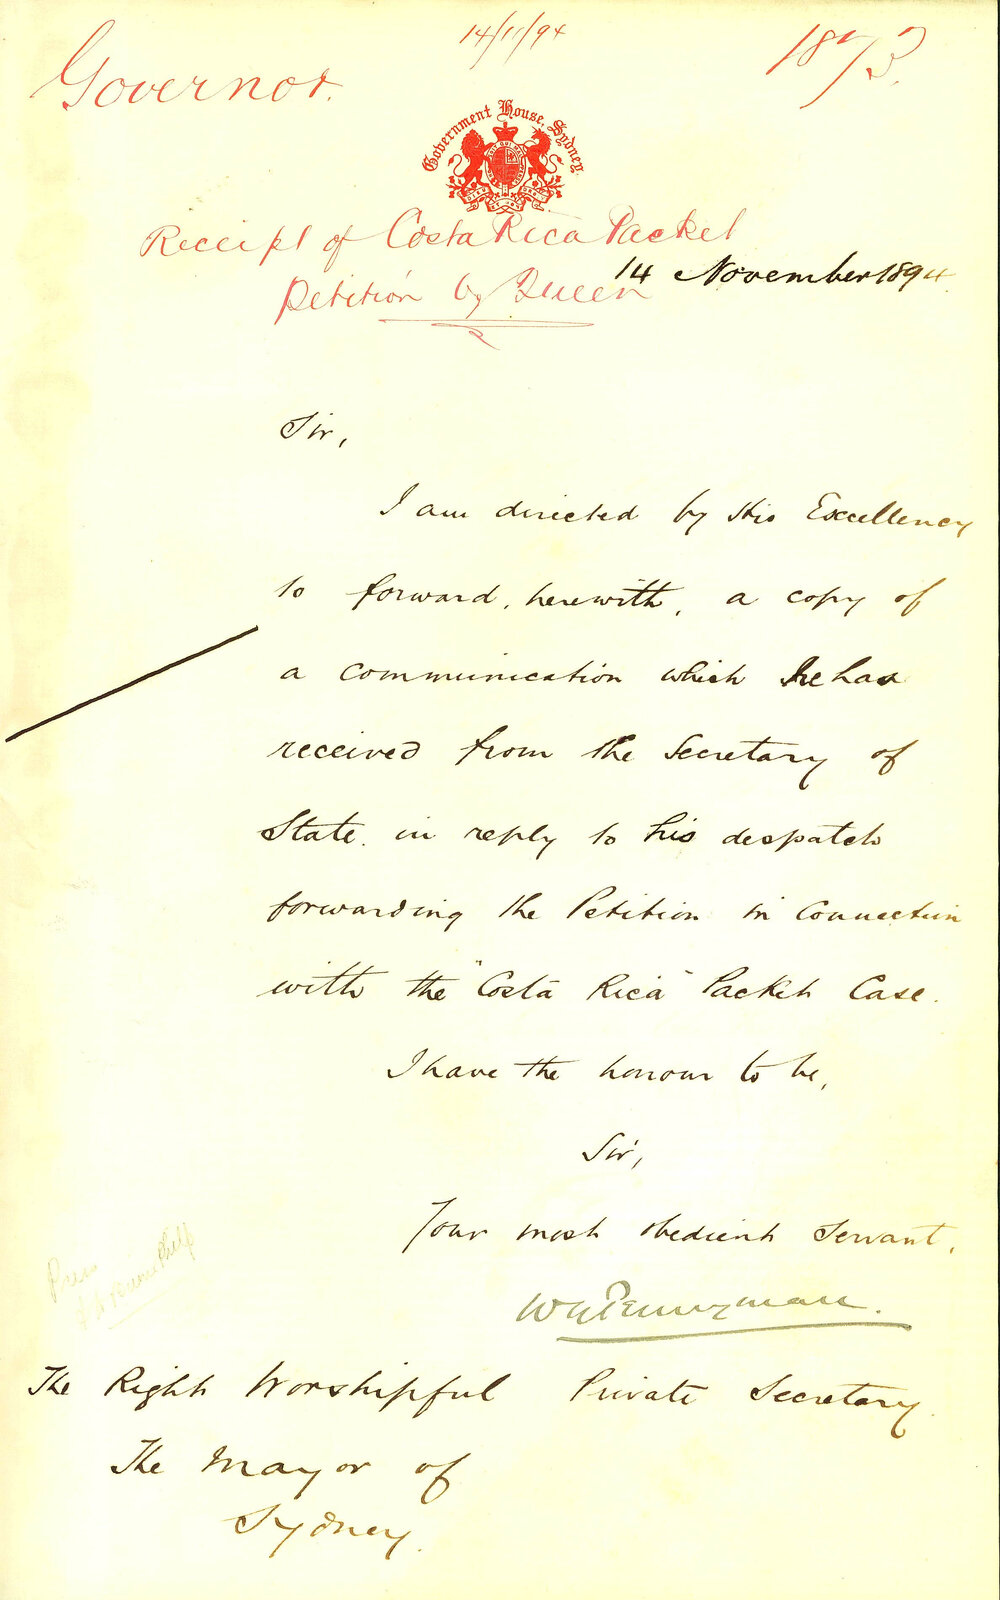 14/11/94
Governor.
1873.
Government House, Sydney.
Receipt of Costa Rica Packet
Petition by Queen
14 November 1894.
Sir,
I am directed by His Excellency
to forward, herewith, a copy of
a communication which he has
received from the Secretary of
State, in reply to his despatch
forwarding the Petition in connection
with the "Costa Rica" Packet Case.
I have the honour to be,
Sir,
Your most obedient Servant,
Private Secretary
The Right Worshipful
The Mayor of
Sydney.